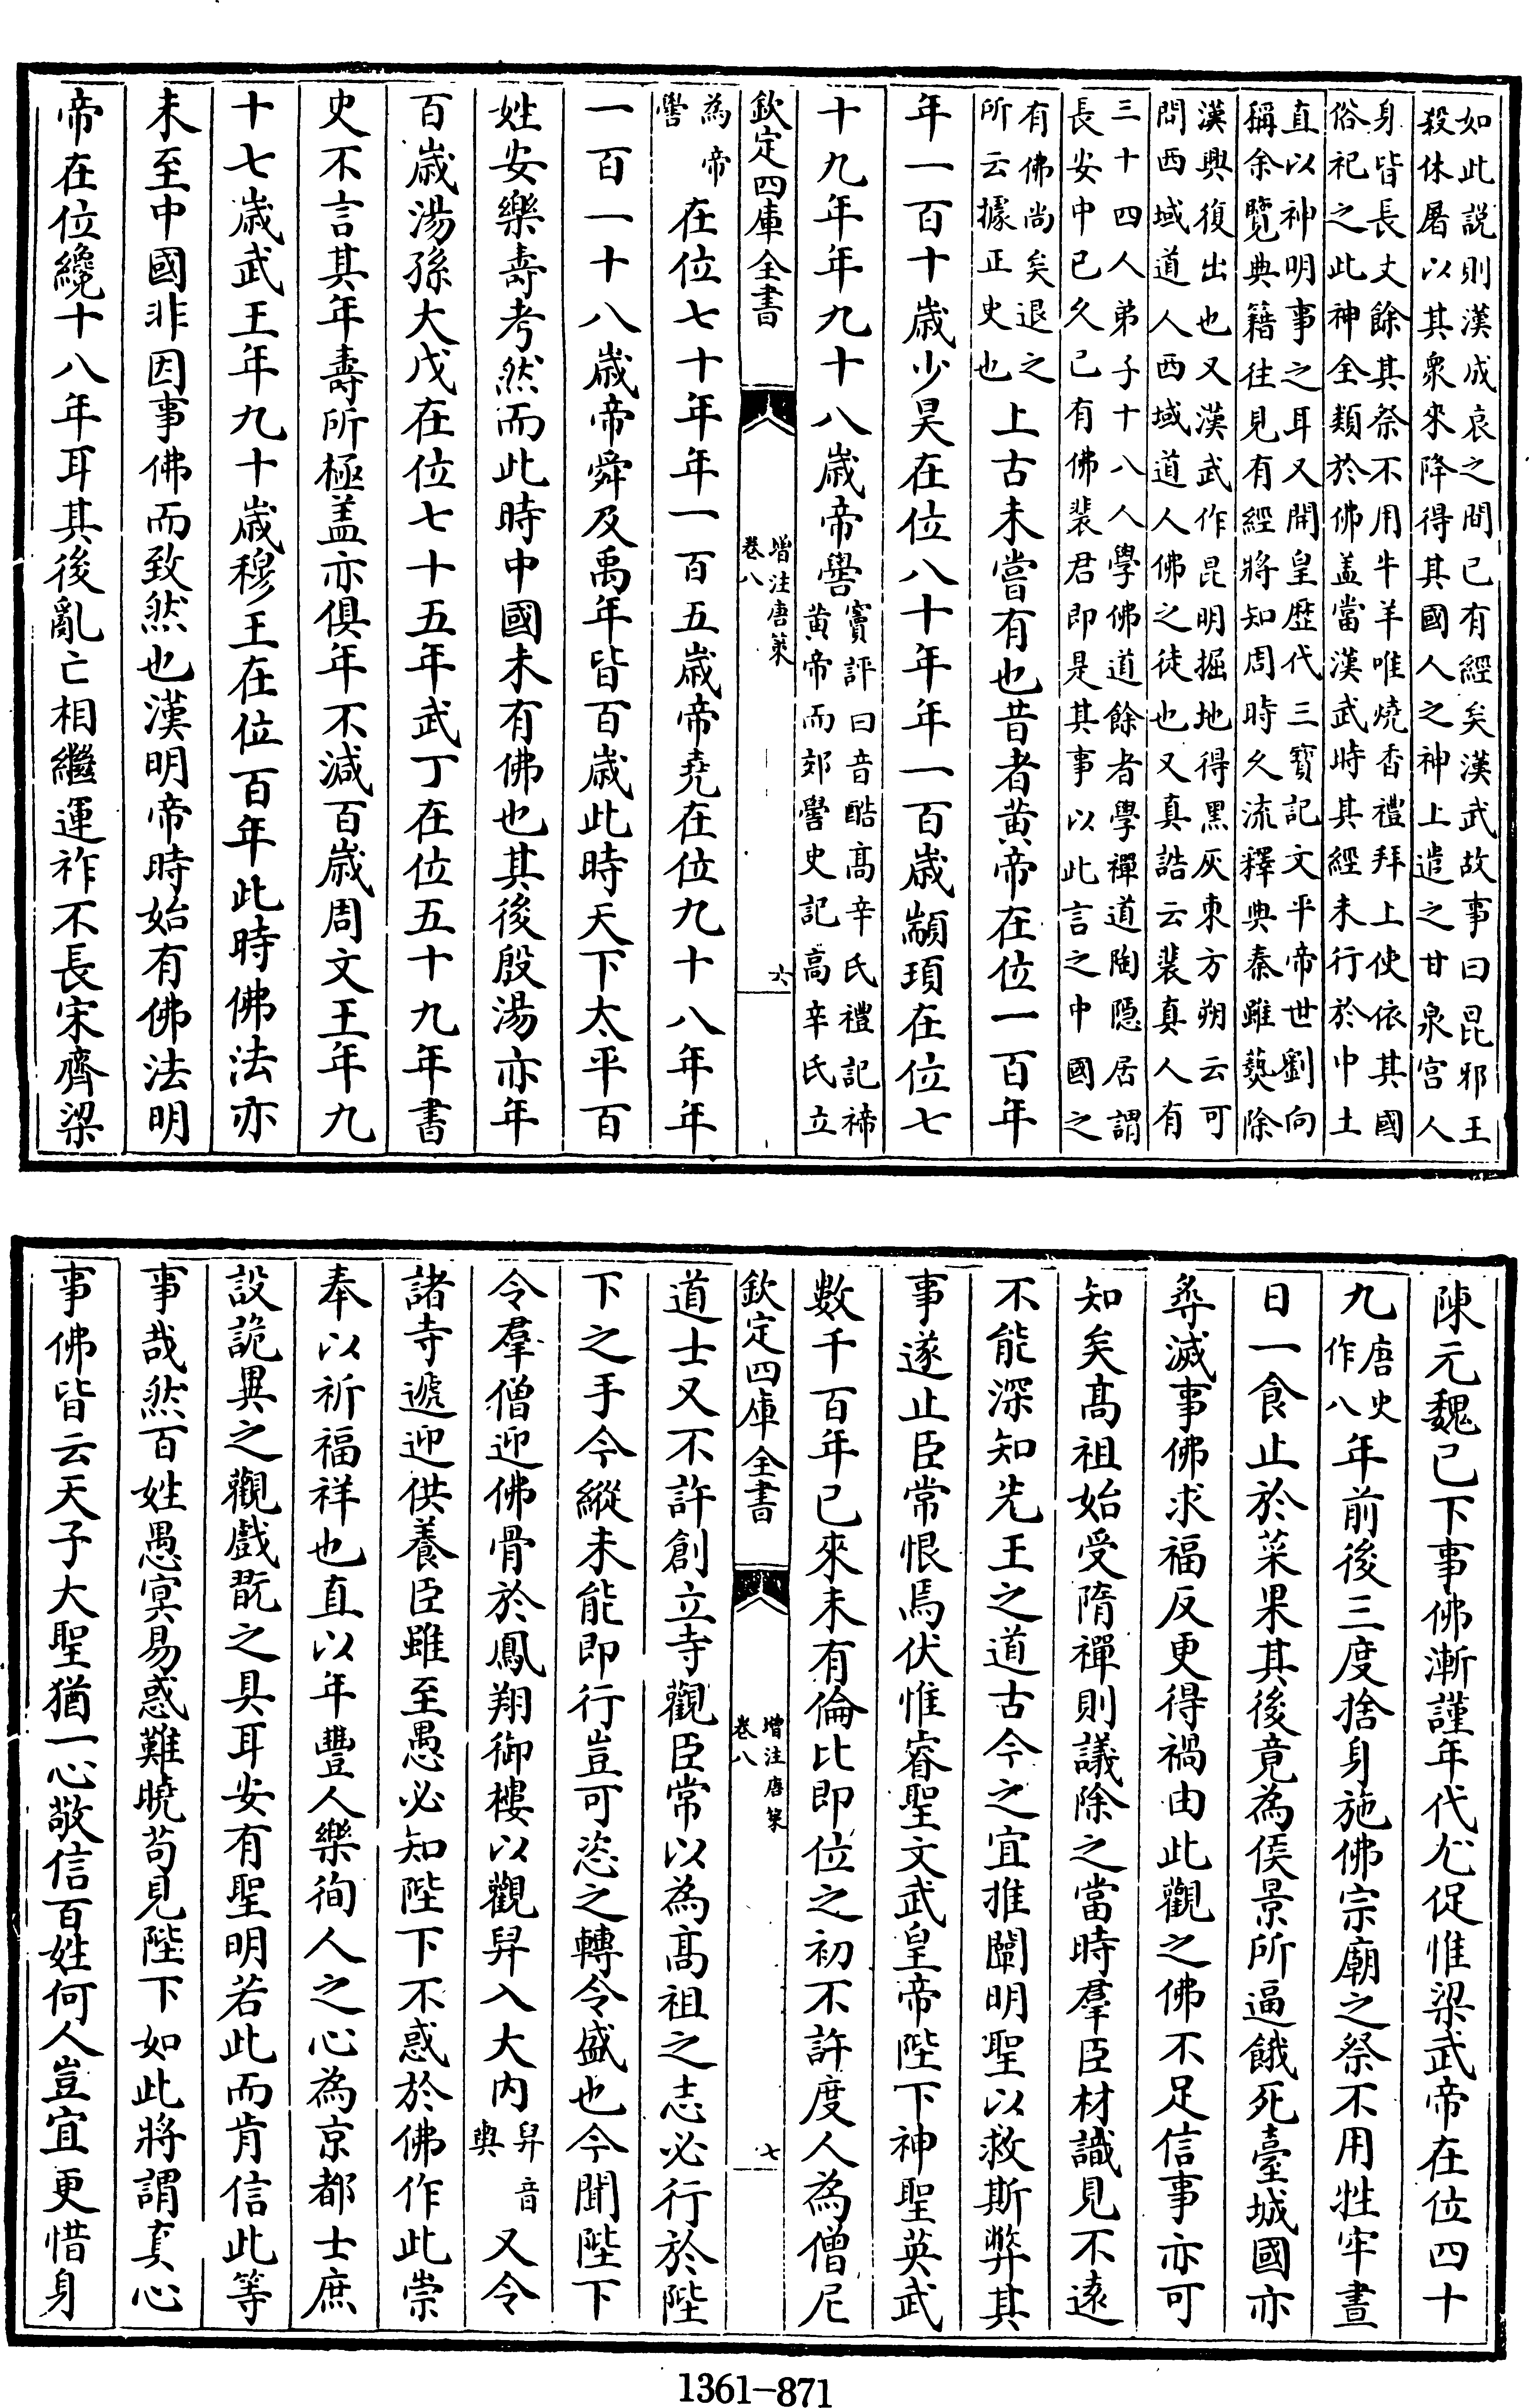 如此説則漢成哀之間已有經矣漢武故事曰昆邪王
殺休屠以其衆來降得其國人之神上遣之甘泉宫人
身皆長丈餘其祭不用牛羊唯燒香禮拜上使依其國
俗祀之此神全類於佛盖當漢武時其經未行於中土
直以神明事之耳又開皇歴代三寶記文平帝世劉向
稱余覽典籍往見有經將知周時久流釋典秦雖爇除
漢興復出也又漢武作昆明掘地得黒灰東方朔云可
問西域道人西域道人佛之徒也又真誥云裴真人有
三十四人弟子十八人學佛道餘者學禪道陶隱居謂
長安中已久已有佛裴君即是其事以此言之中國之
有佛尚矣退之
所云據正史也
上古未嘗有也昔者黄帝在位一百年
年一百十歳少昊在位八十年年一百歳顓頊在位七
十九年年九十八歳帝嚳
竇評曰音酷髙辛氏禮記禘
黄帝而郊嚳史記高辛氏立
欽定四庫全書
增注唐策
卷八
六
為帝
嚳
在位七十年年一百五歳帝堯在位九十八年年
一百一十八歳帝舜及禹年皆百歳此時天下太平百
姓安樂壽考然而此時中國未有佛也其後殷湯亦年
百歳湯孫大戊在位七十五年武丁在位五十九年書
史不言其年壽所極盖亦俱年不減百歳周文王年九
十七歳武王年九十歳穆王在位百年此時佛法亦
未至中國非因事佛而致然也漢明帝時始有佛法明
帝在位纔十八年耳其後亂亡相繼運祚不長宋齊梁
陳元魏已下事佛漸謹年代尤促惟梁武帝在位四十
九
唐史
作八
年前後三度捨身施佛宗廟之祭不用牲牢晝
日一食止於菜果其後竟為侯景所逼餓死臺城國亦
尋滅事佛求福反更得禍由此觀之佛不足信事亦可
知矣髙祖始受隋禪則議除之當時羣臣材識見不遠
不能深知先王之道古今之宜推闡明聖以救斯弊其
事遂止臣常恨焉伏惟睿聖文武皇帝陛下神聖英武
數千百年已來未有倫比即位之初不許度人為僧尼
欽定四庫全書
增注唐策
卷八
七
道士又不許創立寺觀臣常以為髙祖之志必行於陛
下之手今縱未能即行豈可恣之轉令盛也今聞陛下
令羣僧迎佛骨於鳳翔御樓以觀舁入大内
舁音
輿
又令
諸寺遞迎供養臣雖至愚必知陛下不惑於佛作此崇
奉以祈福祥也直以年豐人樂徇人之心為京都士庶
設詭異之觀戲翫之具耳安有聖明若此而肯信此等
事哉然百姓愚冥易惑難曉苟見陛下如此將謂真心
事佛皆云天子大聖猶一心敬信百姓何人豈宜更惜身
1361-871